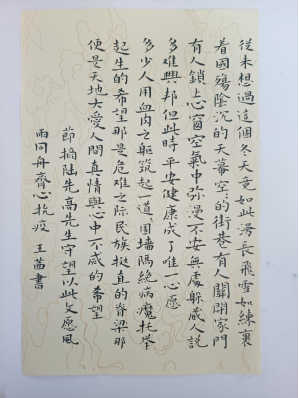 從未想過這個冬天竟如此漫長飛雪如練裹
着國殤陰沉的天幕空的街巷有人關閉家門
有人鎖上心窗空氣中弥漫不安無處躲藏人説
多難興邦但此時平安健康成了唯一心愿
多少人用血肉之軀筑起一道圍墙隔絶病魔托举
起生的希望那是危难之际民族挺直的脊梁那
便是天地大愛人間真情與心中不咸的希望
節摘陆先高先生守望以此文愿風
雨同舟齊心抗疫王茜書